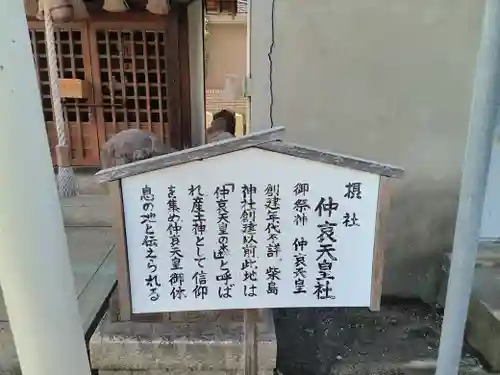 摂社
仲哀天皇社。
御祭神 仲哀天皇
創建年代不詳。柴島
神社創建以前此地は
「仲哀天皇の森」と呼ば
れ産土神として信仰
を集め仲哀天皇御休
息の地と伝えられる